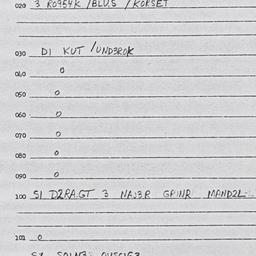 020 3 RO9S4K /BLUS /KORSET
030 DI KUT /UND3ROK
040 0
050 0
060 0
070 0
080 0
090 0
100 SI D2RAGT 3 NAJ3R GPINR MAND2L
101 0